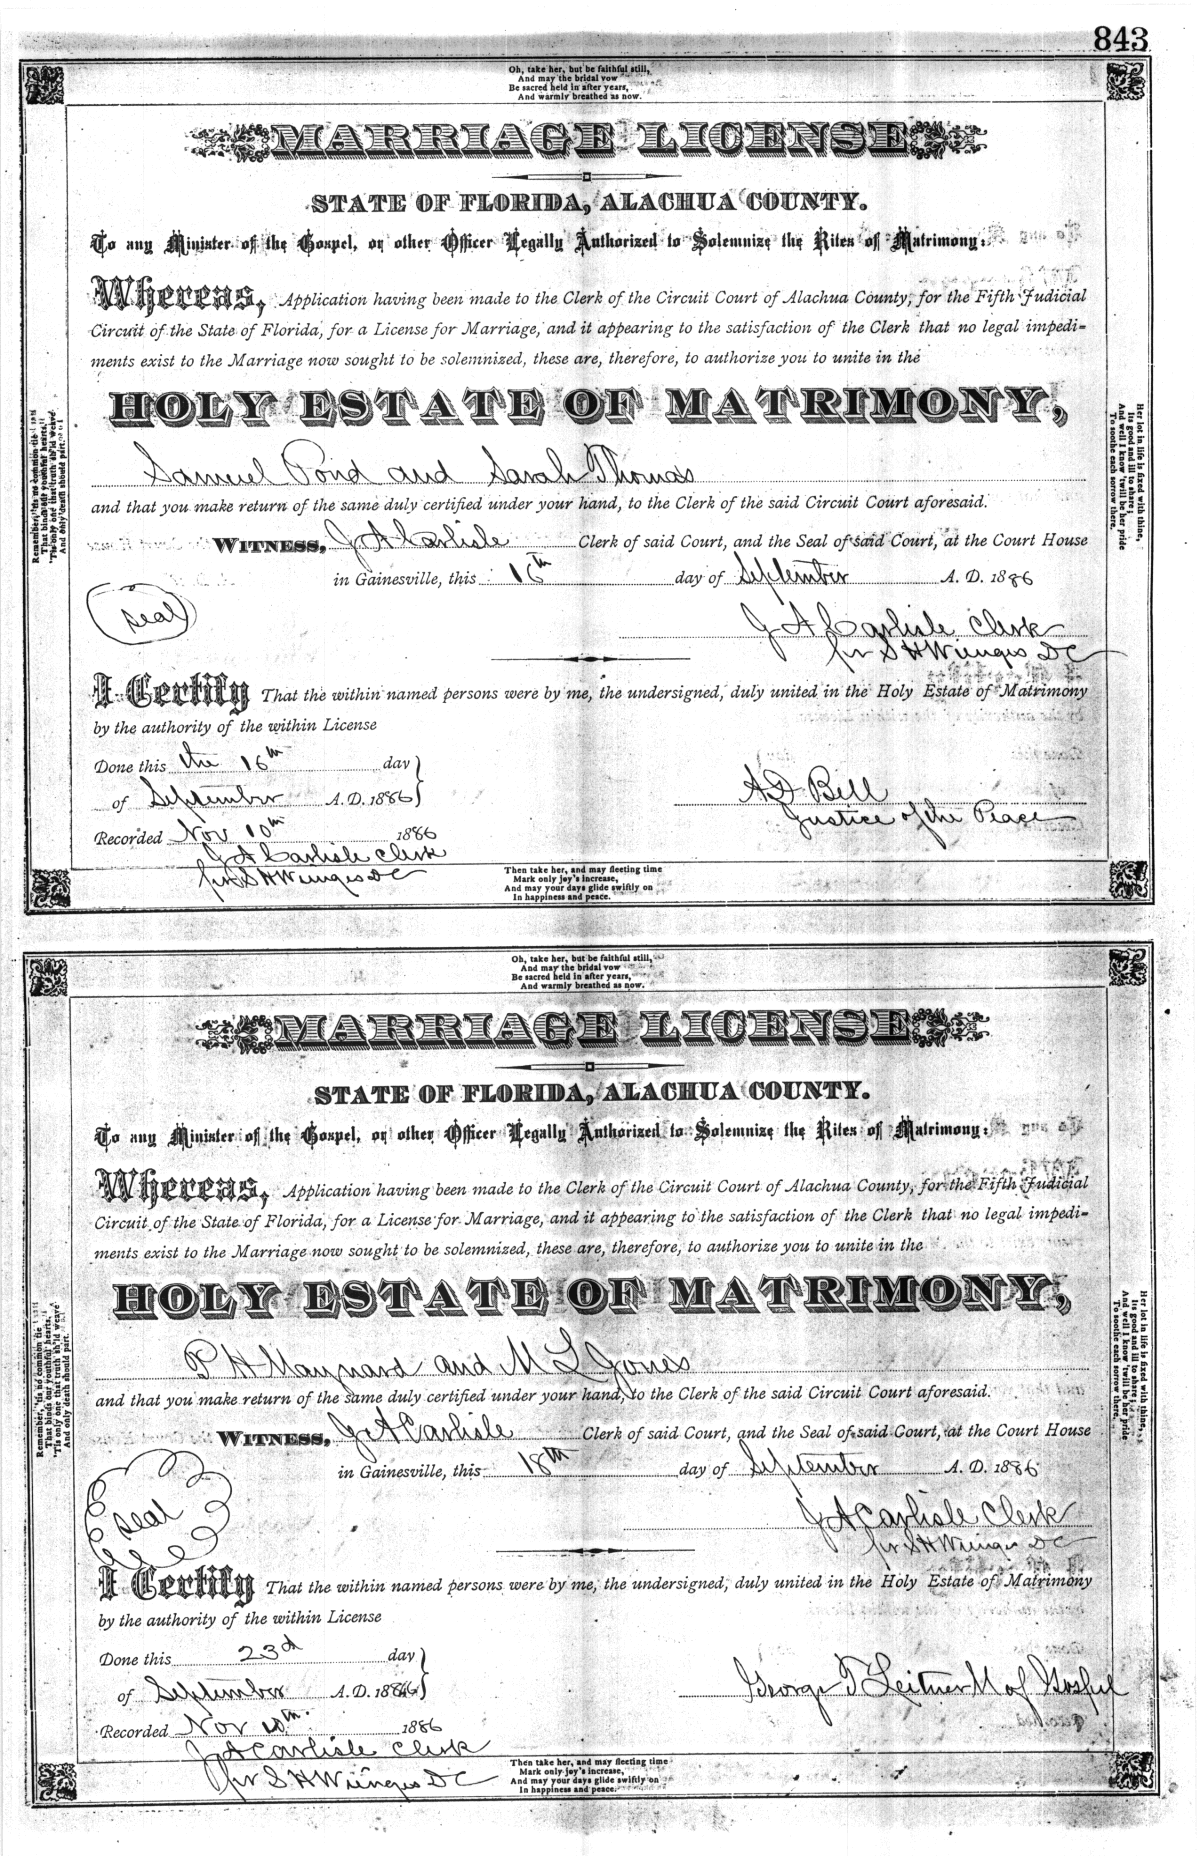 843
Oh, take her, but be faithful still,
And may the bridal vow
Be sacred held in after years,
And warmly breathed as now.
MARRIAGE LICENSE
STATE OF FLORIDA, ALACHUA COUNTY.
To any Minister of the Gospel, or other Officer Legally Authorized to Solemnize the Rites of Matrimony:
Whereas, Application having been made to the Clerk of the Circuit Court of Alachua County, for the Fifth Judicial
Circuit of the State of Florida, for a License for Marriage, and it appearing to the satisfaction of the Clerk that no legal impedi-
ments exist to the Marriage now sought to be solemnized, these are, therefore, to authorize you to unite in the
HOLY ESTATE OF MATRIMONY,
Samuel Pond and Sarah Thomas
and that you make return of the same duly certified under your hand, to the Clerk of the said Circuit Court aforesaid.
WITNESS, J A Carlisle Clerk of said Court, and the Seal of said Court, at the Court House
in Gainesville, this 16th day of September A. D. 1886
seal
J A Carlisle Clerk
per S H Wienges DC
I Certify That the within named persons were by me, the undersigned, duly united in the Holy Estate of Matrimony
by the authority of the within License
Done this the 16th day
of September A. D. 1886
A D Bell
Justice of the Peace
Recorded Nov 10th 1886
J A Carlisle Clerk
per S H Wienges DC
Remember, 'tis no common tie
That binds our youthful hearts,
'Tis only one that truth sh'ld weave
And only death should part.
Her lot in life is fixed with thine,
Its good and ill to share;
And well I know 'twill be her pride
To soothe each sorrow there.
Then take her, and may fleeting time
Mark only joy's increase,
And may your days glide swiftly on
In happiness and peace.
Oh, take her, but be faithful still,
And may the bridal vow
Be sacred held in after years,
And warmly breathed as now.
MARRIAGE LICENSE
STATE OF FLORIDA, ALACHUA COUNTY.
To any Minister of the Gospel, or other Officer Legally Authorized to Solemnize the Rites of Matrimony:
Whereas, Application having been made to the Clerk of the Circuit Court of Alachua County, for the Fifth Judicial
Circuit of the State of Florida, for a License for Marriage, and it appearing to the satisfaction of the Clerk that no legal impedi-
ments exist to the Marriage now sought to be solemnized, these are, therefore, to authorize you to unite in the
HOLY ESTATE OF MATRIMONY,
P H Maynard and M L Jones
and that you make return of the same duly certified under your hand, to the Clerk of the said Circuit Court aforesaid.
WITNESS, J A Carlisle Clerk of said Court, and the Seal of said Court, at the Court House
in Gainesville, this 18th day of September A. D. 1886
seal
J A Carlisle Clerk
per S H Wienges DC
I Certify That the within named persons were by me, the undersigned, duly united in the Holy Estate of Matrimony
by the authority of the within License
Done this 23d day
of September A. D. 1886
George T Leitner M of Gospel
Recorded Nov 10th 1886
J A Carlisle Clerk
per S H Wienges DC
Remember, 'tis no common tie
That binds our youthful hearts,
'Tis only one that truth sh'ld weave
And only death should part.
Her lot in life is fixed with thine,
Its good and ill to share;
And well I know 'twill be her pride
To soothe each sorrow there.
Then take her, and may fleeting time
Mark only joy's increase,
And may your days glide swiftly on
In happiness and peace.